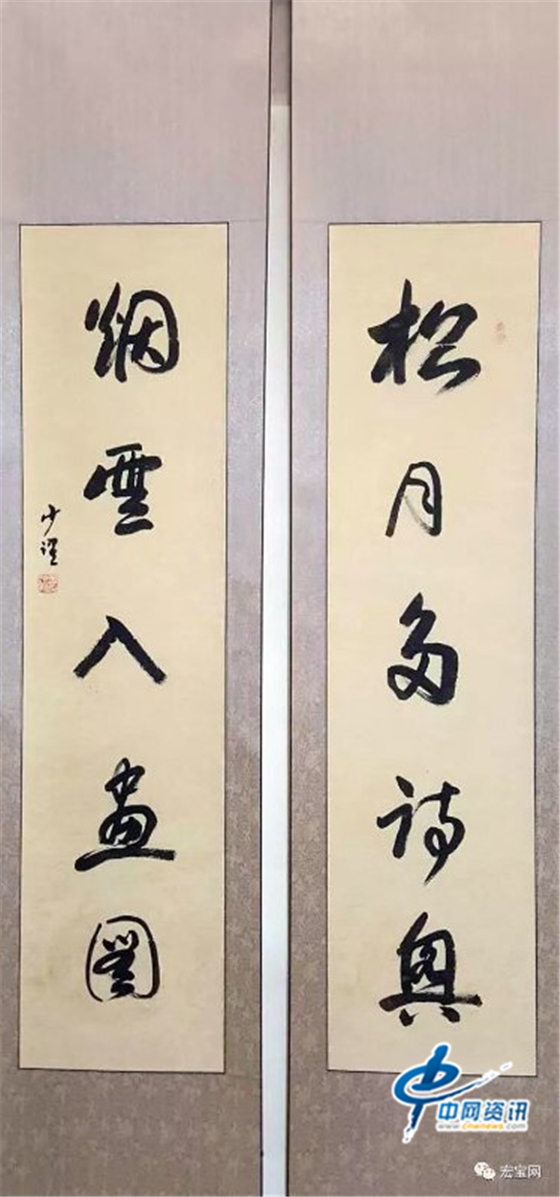 松月多詩興
烟雲入畫圖
少
中网资讯
www.cnwnews.com
宏宝网